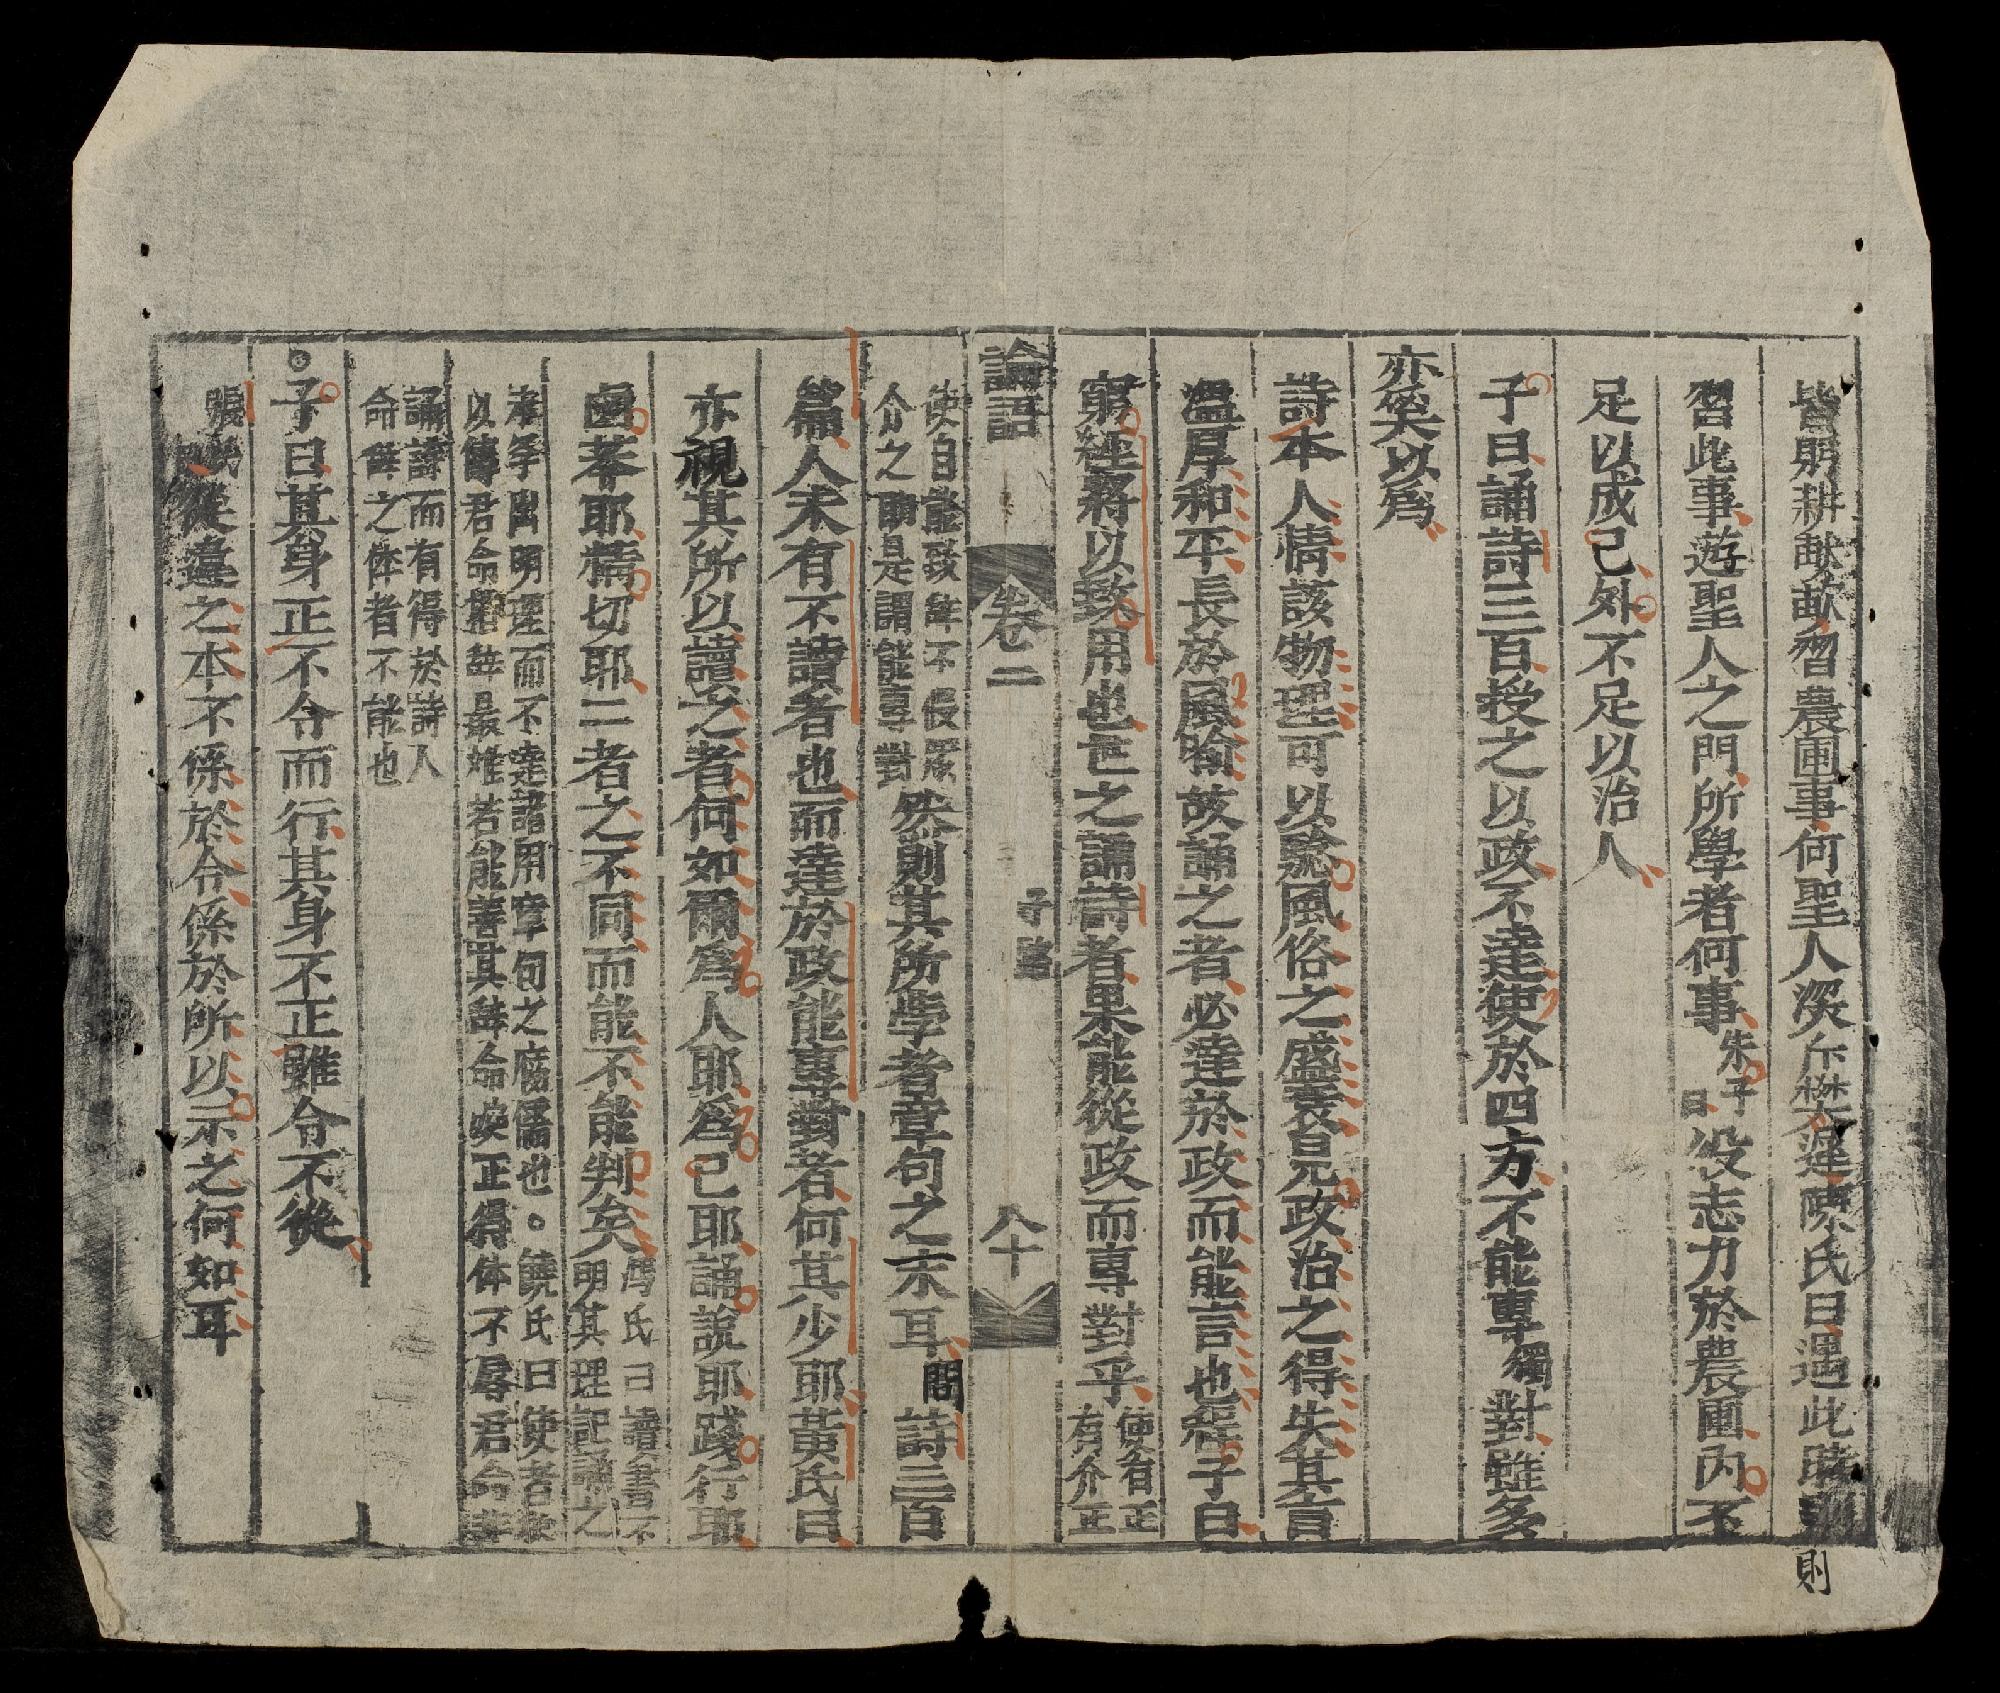 皆躬耕畎畝習農圃事何聖人深斥樊遲陳氏曰遇此時則
則
習此事遊聖人之門所學者何事朱子曰役志力於農圃內不
足以成己外不足以治人
子曰誦詩三百授之以政不達使於四方不能專獨對雖多
亦奚以爲
詩本人情該物理可以驗風俗之盛衰見政治之得失其言
溫厚和平長於風喻故誦之者必達於政而能言也程子曰
窮經將以致用也世之誦詩者果能從政而專對乎使有正有介正
論語 卷二 子路 八十
使自能致辞不假眾介之助是謂能專對然則其所學者章句之末耳問詩三百
篇人未有不讀者也而達於政能專對者何其少耶黃氏曰
亦視其所以讀之者何如爾為人耶為己耶誦說耶踐行耶
鹵莽耶精切耶二者之不同而能不能判矣馮氏曰讀書不明其理記誦之
而不達諸用章句之腐儒也。饒氏曰使者
以傳君命辞最难若能善其辞命唉正得体不辱君命
誦詩而有得於詩人
命辞之体者不能也
子曰其身正不令而行其身不正雖令不從
從違之本不係於令係於所以示之何如耳